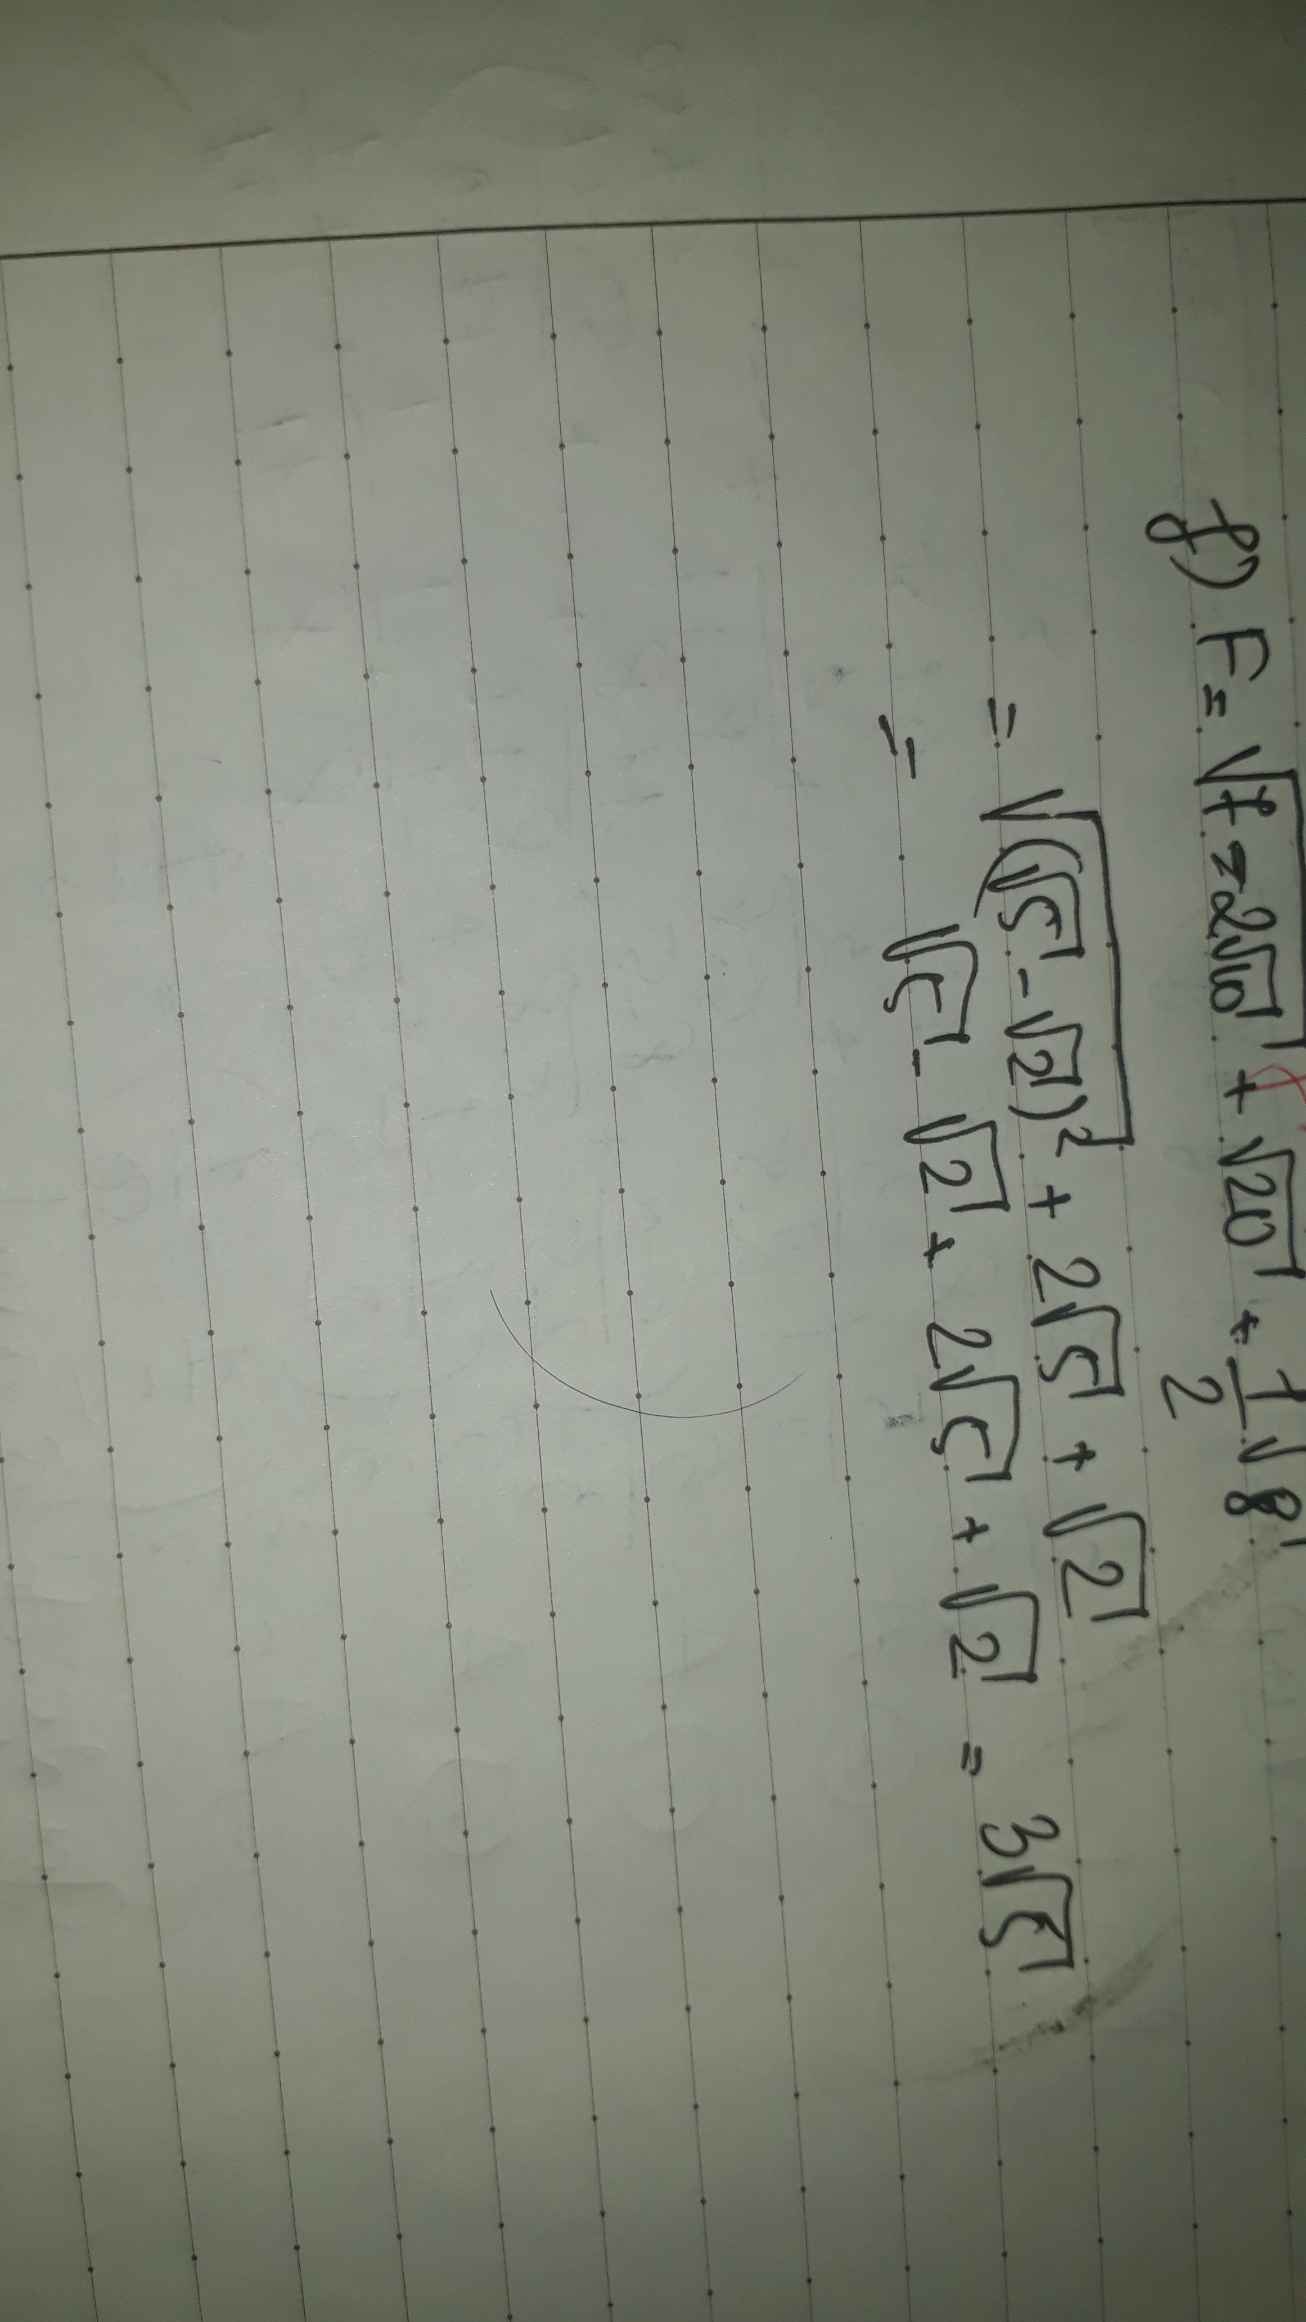 f) F = √(7 - 2√10) + √20 + 1/2 √8
= √((√5 - √2)²) + 2√5 + √2
= √5 - √2 + 2√5 + √2 = 3√5